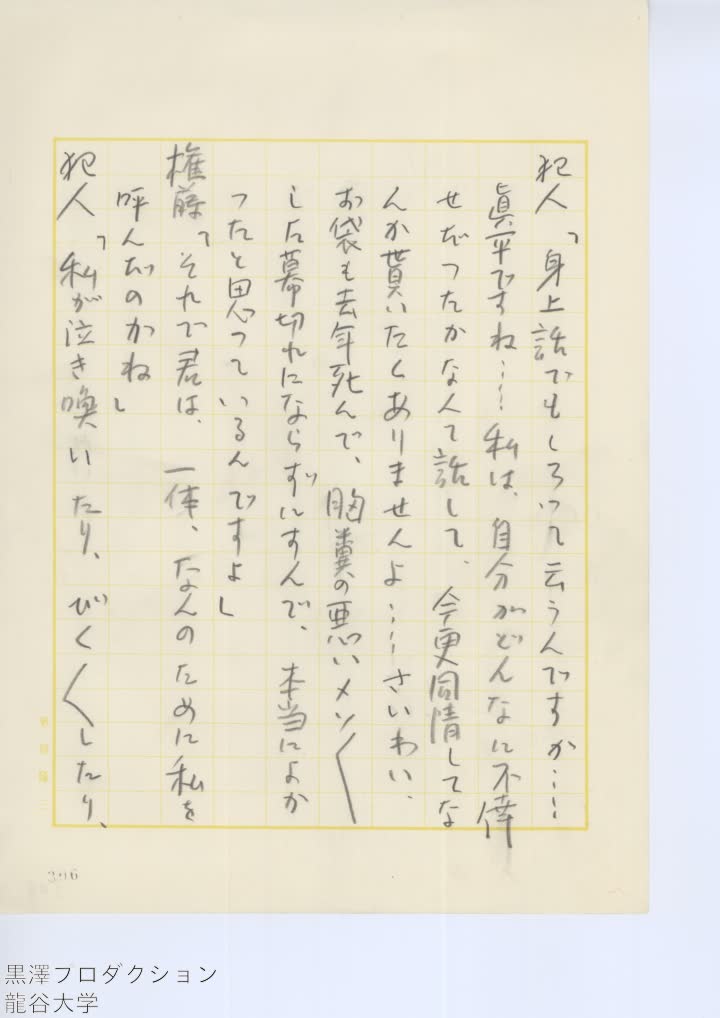 犯人「身上話でもしろって云うんですか……
眞平ですね……私は、自分がどんなに不倖
せだつたかなんて話して、今更同情してな
んか貰いたくありませんよ……さいわい、
お袋も去年死んで、胸糞の悪いメソ〱
した幕切れにならずにすんで、本当によか
つたと思つているんですよ」
権藤「それで君は、一体、なんのために私を
呼んだのかね」
犯人「私が泣き喚いたり、びく〱したり、
306
黒澤プロダクション
龍谷大学